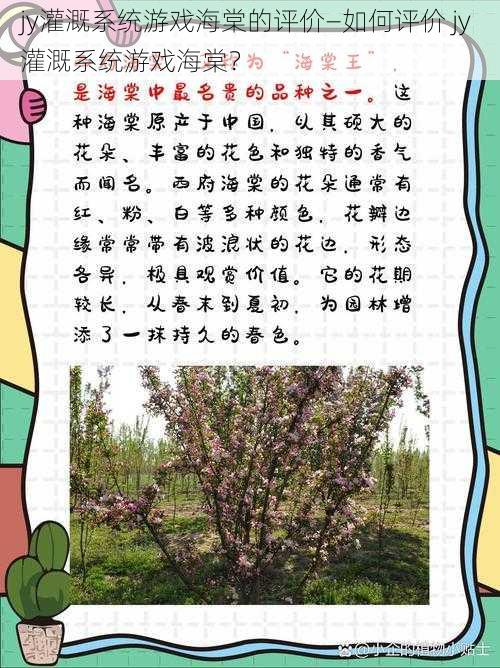 jy灌溉系统游戏海棠的评价—如何评价 jy
灌溉系统游戏海棠?
为“海棠王”，
是海棠中最名贵的品种之一。这
种海棠原产于中国，以其硕大的
花朵、丰富的花色和独特的香气
而闻名。西府海棠的花朵通常有
红、粉、白等多种颜色，花瓣边
缘常常带有波浪状的花边，形态
各异，极具观赏价值。它的花期
较长，从春末到夏初，为园林增
添了一抹持久的春色。
小企的植物小贴士